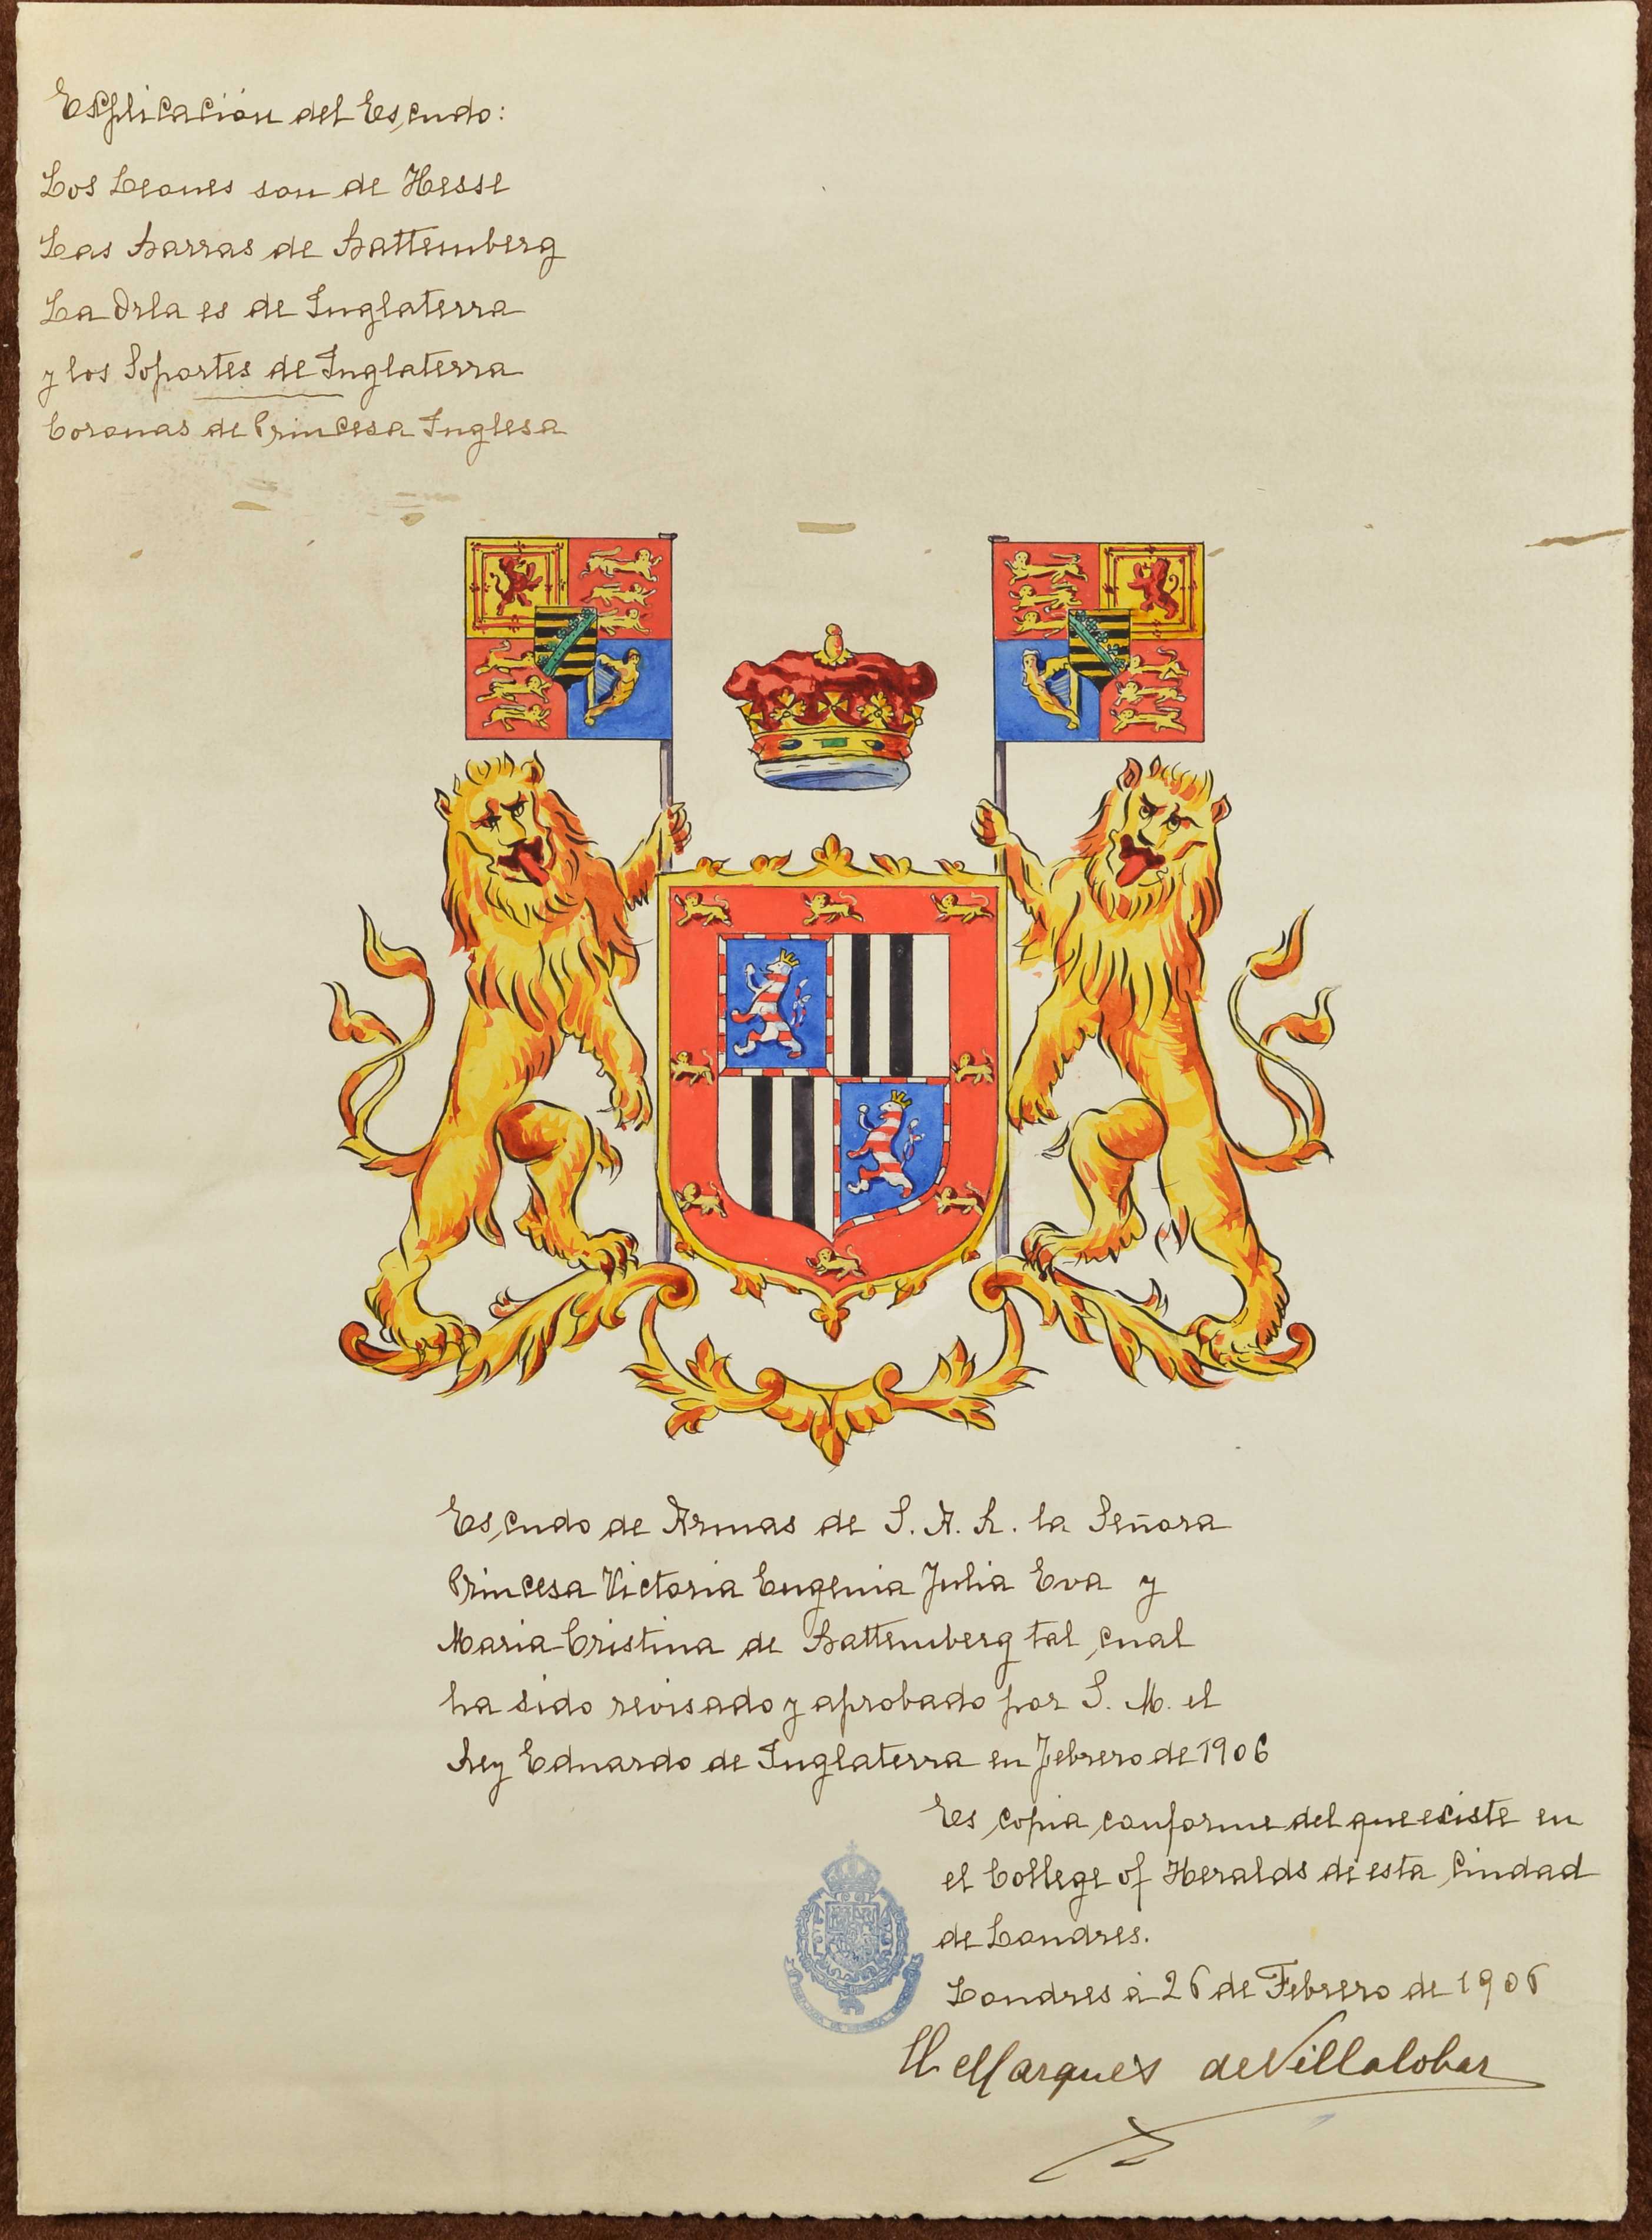 Esplicación del Escudo:
Los Leones son de Hesse
Las barras de Battemberg
La Orla es de Inglaterra
y los Soportes de Inglaterra
Coronas de Princesa Inglesa
Escudo de Armas de S. A. R. la Señora
Princesa Victoria Eugenia Julia Eva y
Maria Cristina de Battemberg tal cual
ha sido revisado y aprobado por S. M. el
Rey Eduardo de Inglaterra en Febrero de 1906
Es copia conforme del que existe en
el College of Heralds de esta Ciudad
de Londres.
Londres à 26 de Febrero de 1906
El Marqués de Villalobar